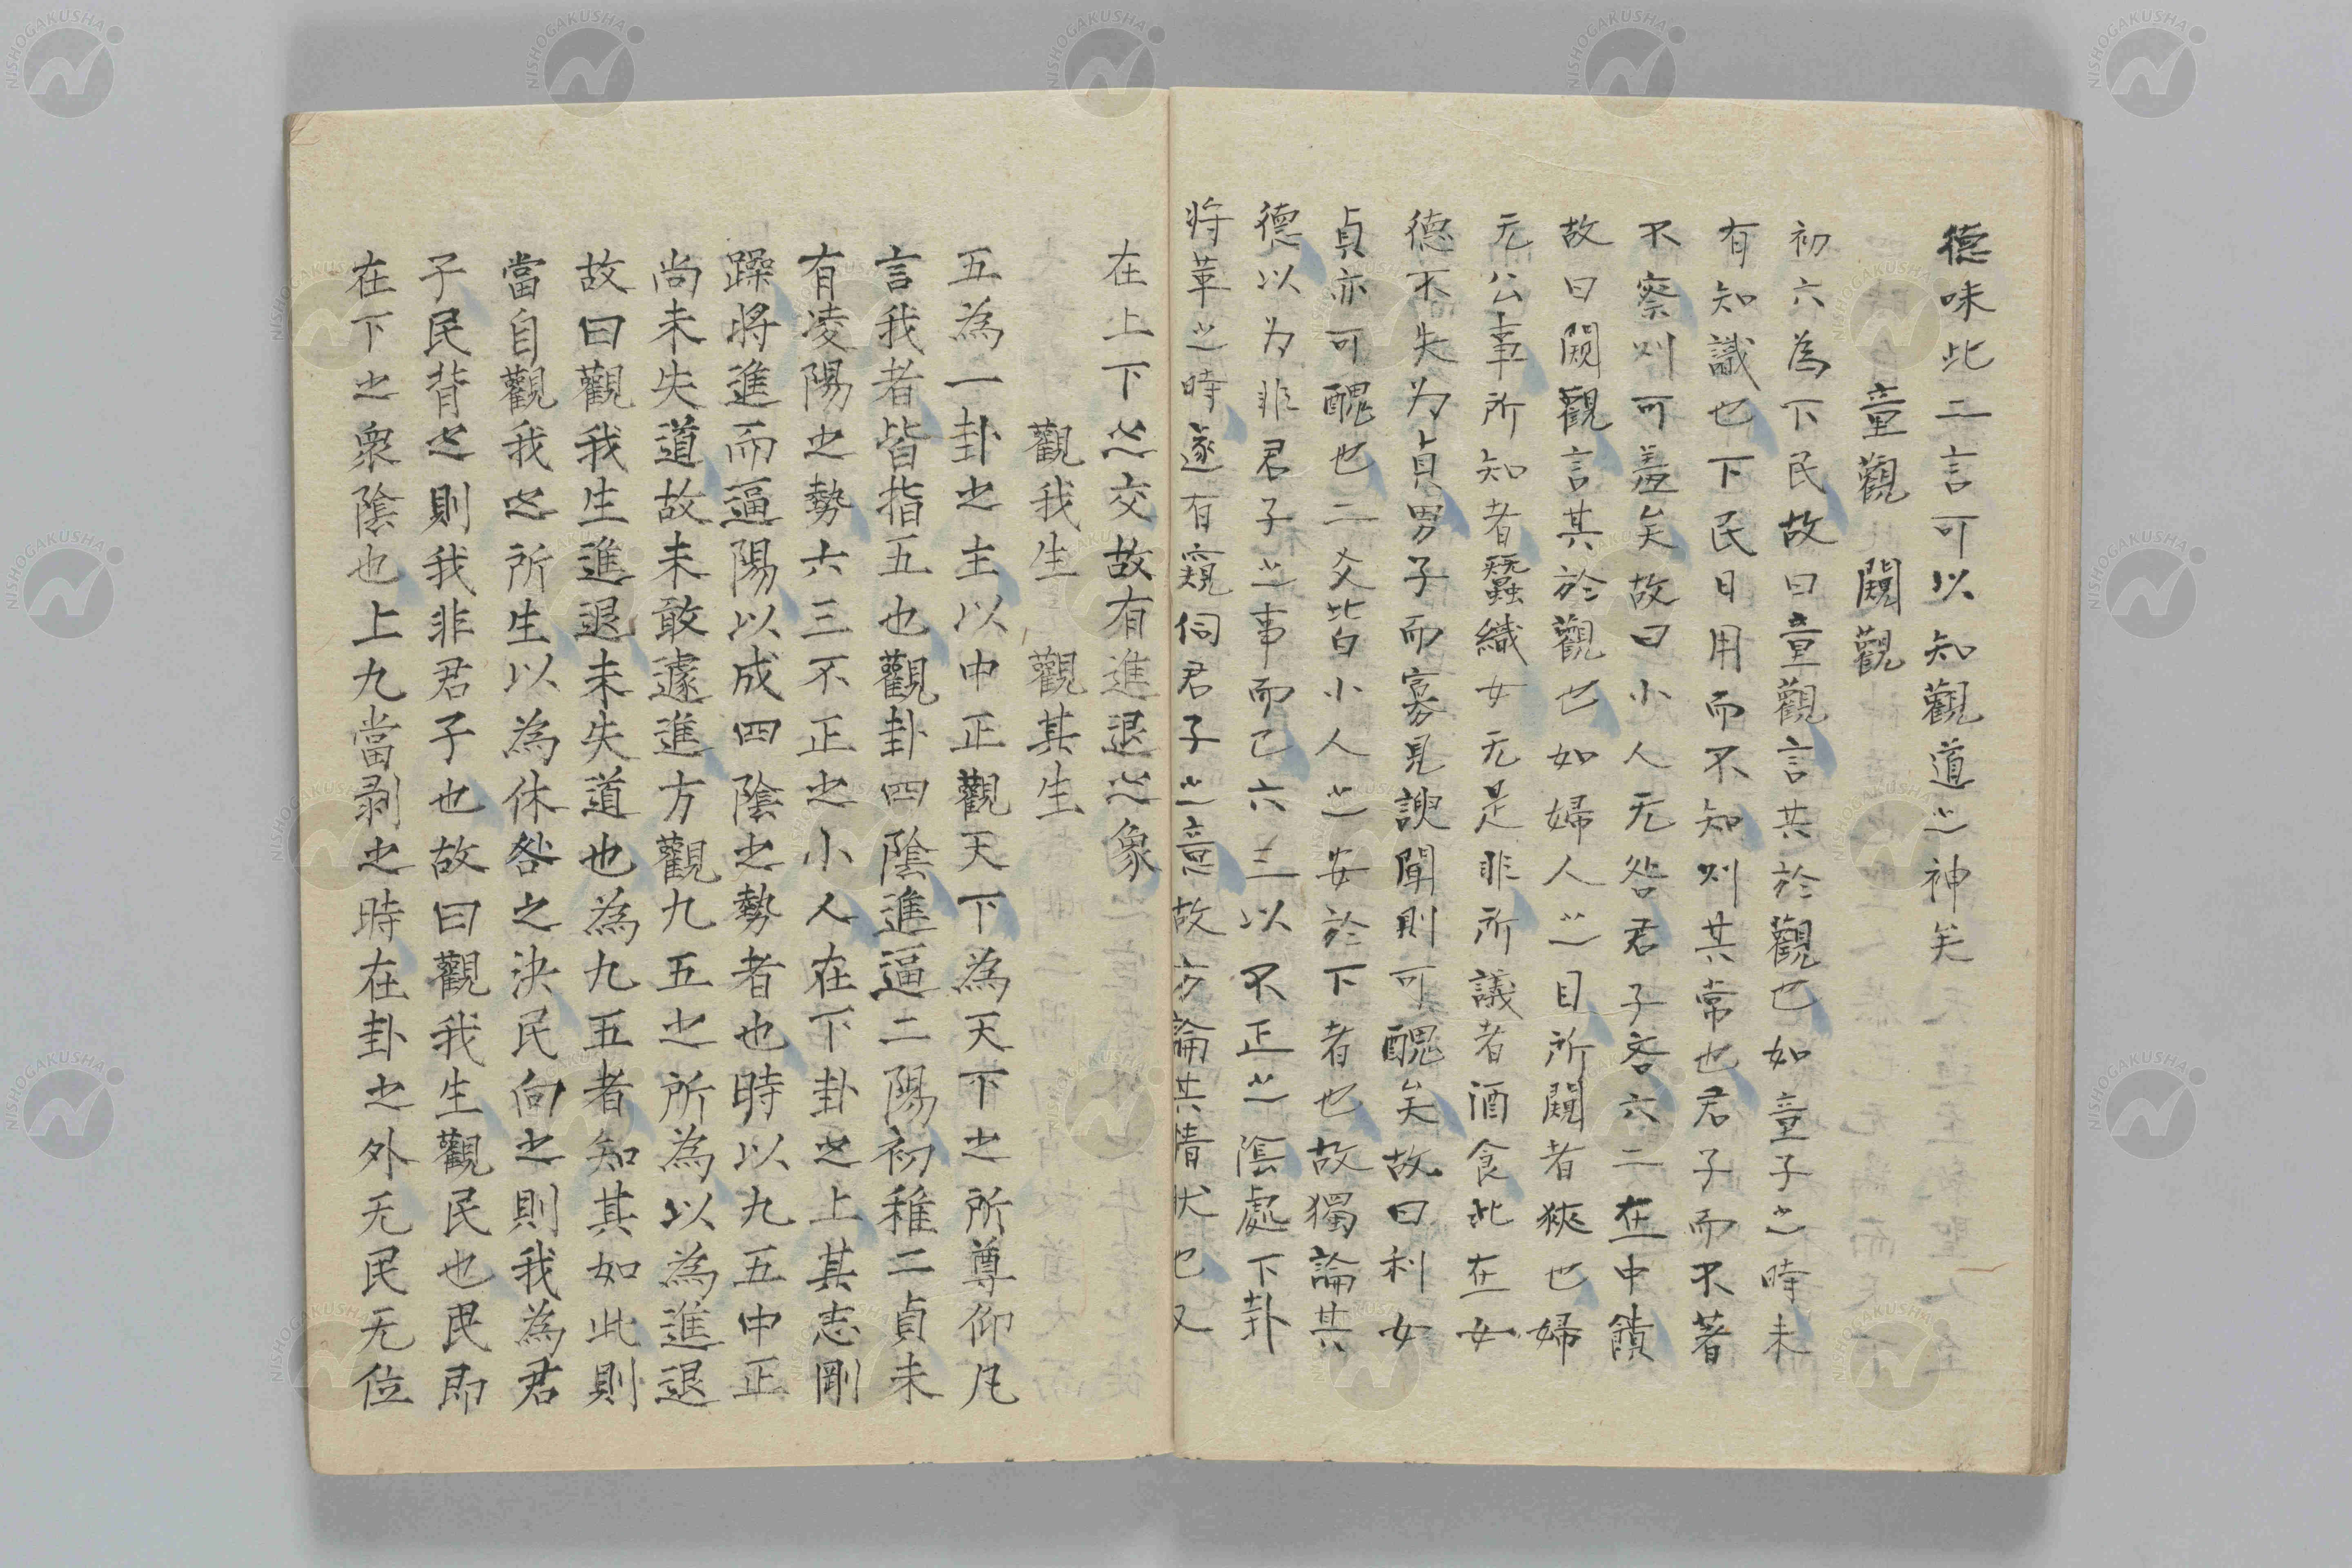 德味此二言可以知觀道之神矣
童觀 闚觀
初六為下民故曰童觀言其於觀也如童子之時未
有知識也下民日用而不知則其常也君子而不著
不察則可羞矣故曰小人无咎君子吝六二在中饋
故曰闚觀言其於觀也如婦人之目所闚者狹也婦
无公事所知者蠶織女无是非所議者酒食此在女
德不失为貞男子而寡見諛聞則可醜矣故曰利女
貞亦可醜也二爻皆小人之安於下者也故獨論其
德以为非君子之事而已六三以不正之陰處下卦
将革之時遂有窺伺君子之意故方論其情状也又
在上下之交故有進退之象
觀我生 觀其生
五為一卦之主以中正觀天下為天下之所尊仰凡
言我者皆指五也觀卦四陰進逼二陽初稚二貞未
有凌陽之勢六三不正之小人在下卦之上其志剛
躁將進而逼陽以成四陰之勢者也時以九五中正
尚未失道故未敢遽進方觀九五之所為以為進退
故曰觀我生進退未失道也為九五者知其如此則
當自觀我之所生以為休咎之決民向之則我為君
子民背之則我非君子也故曰觀我生觀民也民即
在下之衆陰也上九當剥之時在卦之外无民无位
NISHOGAKUSHA